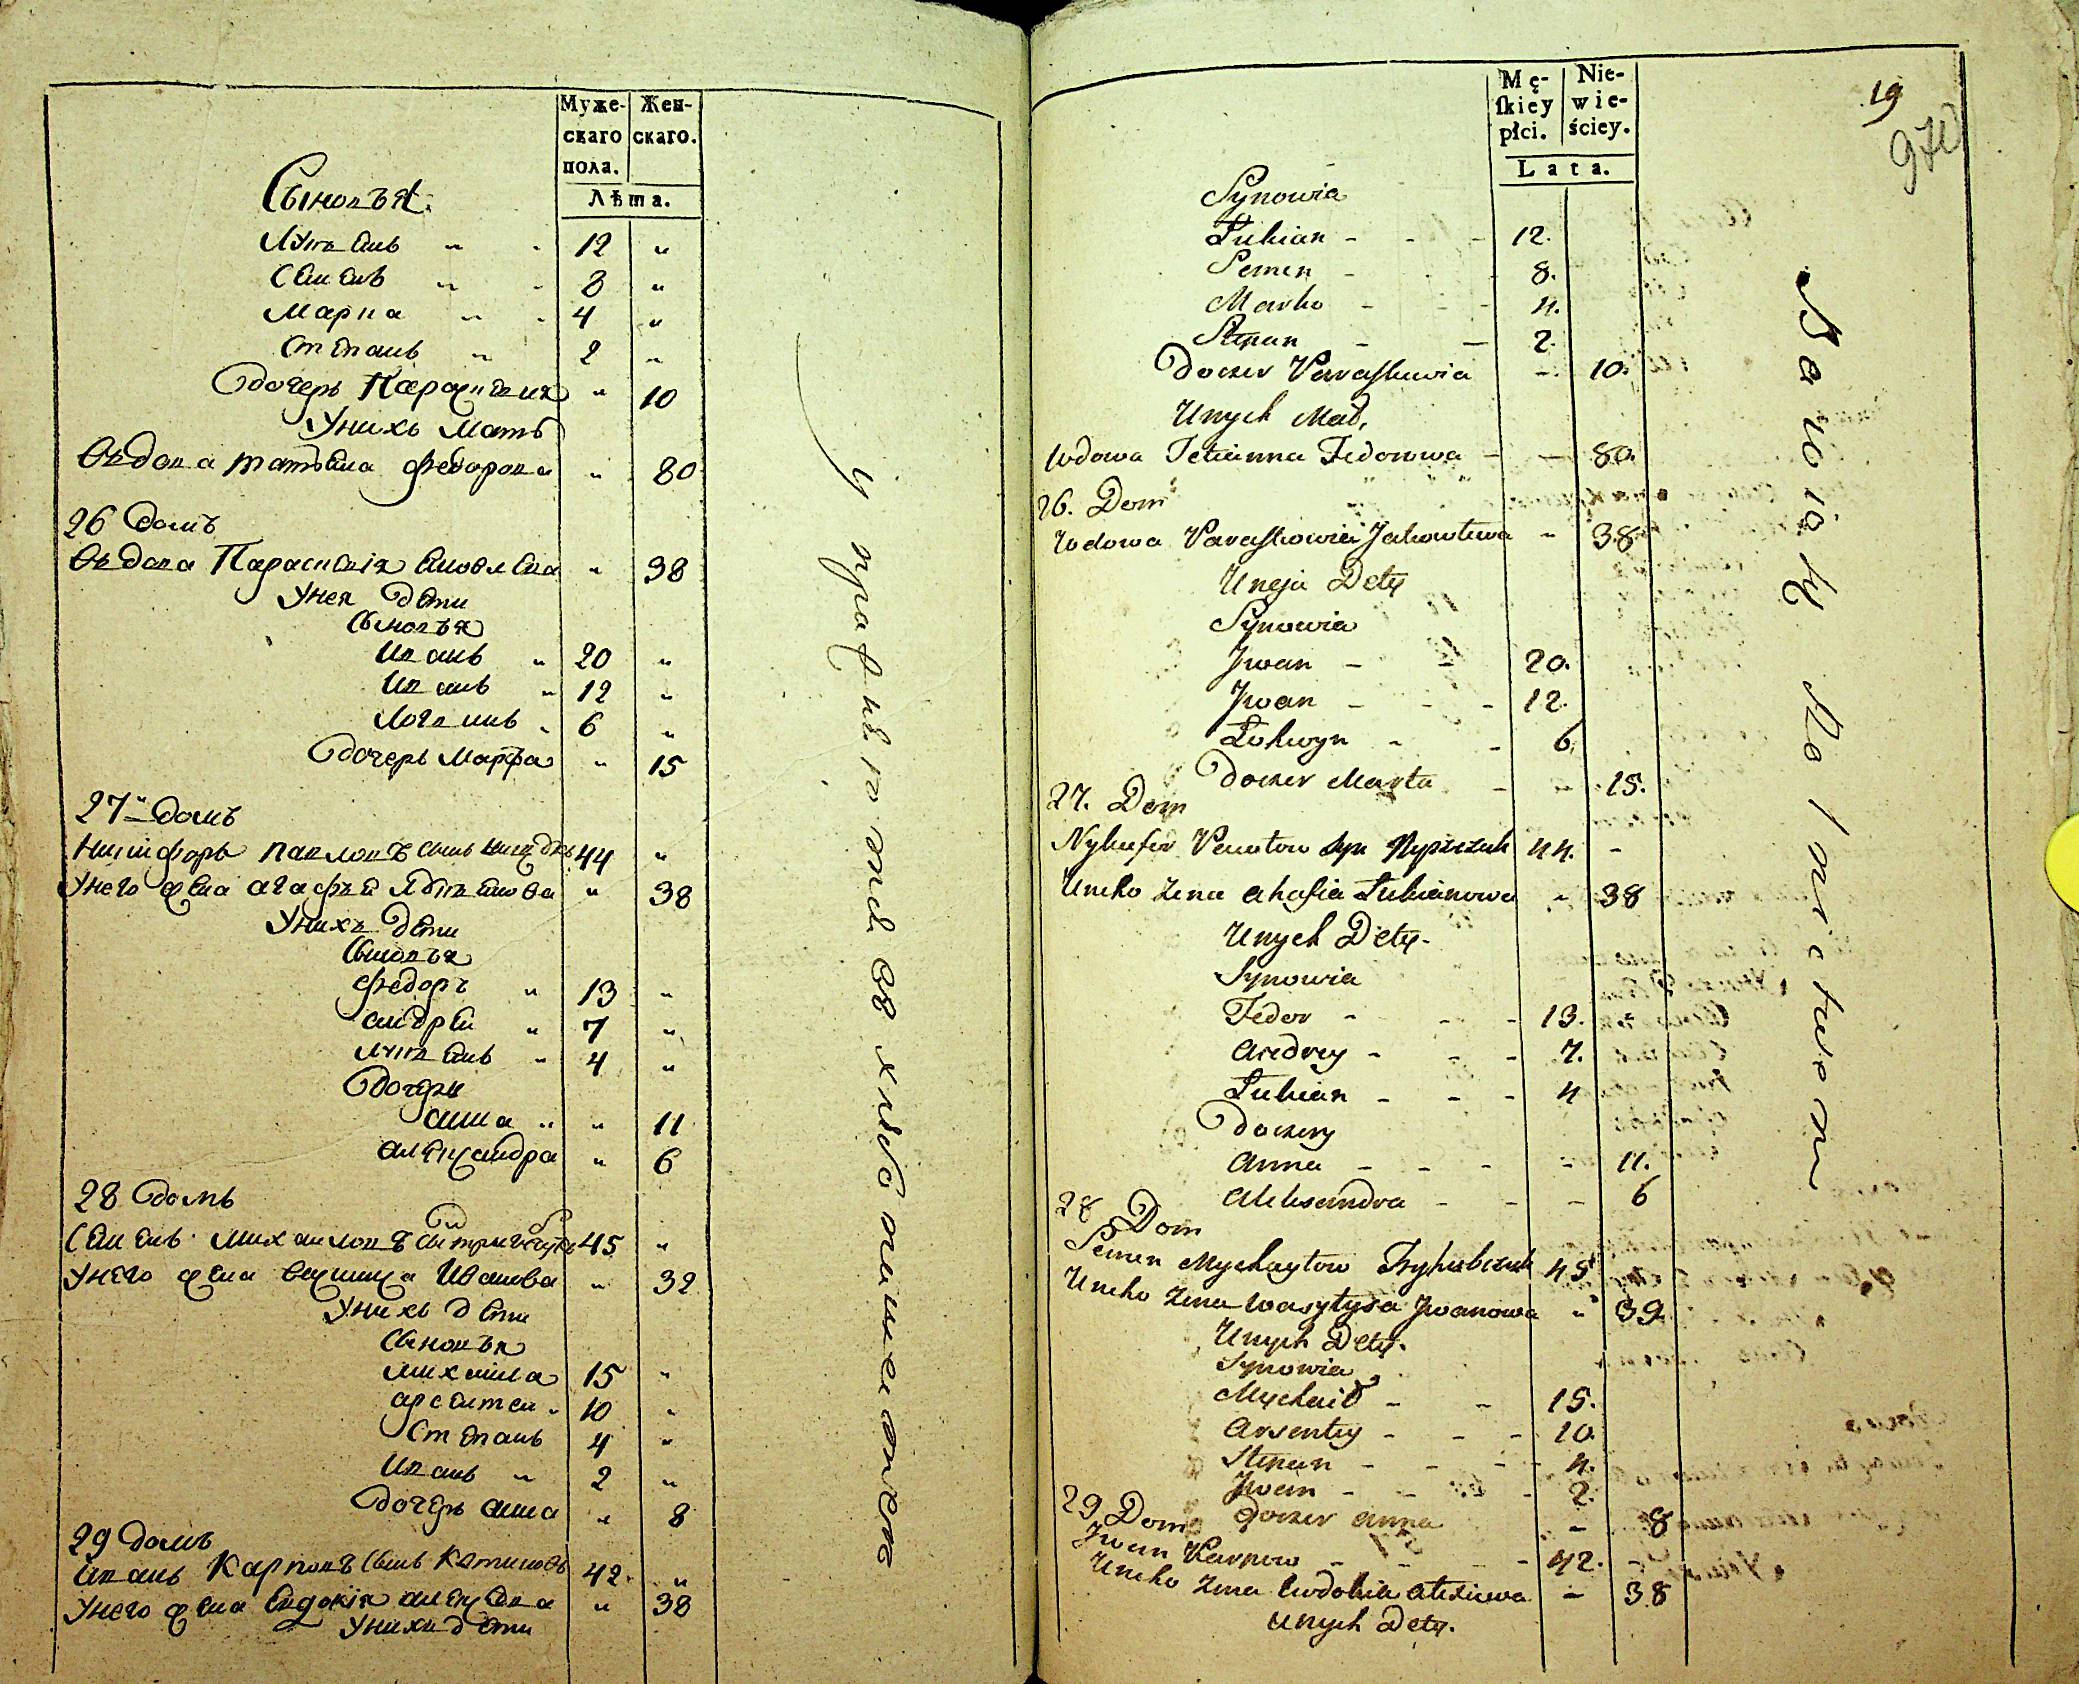 Муже- Жен-
скаго скаго.
пола.
Лѣта.
Сыновья
Лукьянъ " " 12 "
Семенъ " " 8 "
Марко " " 4 "
Степанъ " 2 "
Дочерь Параскевия " 10
У нихъ мать
Вдова Татьяна Федорова " 80
26 домъ
Вдова Параскевія Яковлева " 38
У нея дети
Сыновья
Иванъ " 20 "
Иванъ " 12 "
Логвинъ " 6 "
Дочерь Марфа " 15
27й домъ
Никифоръ Павловъ сынъ 44 "
У него жена Агафья Лукьянова " 38
У нихъ дети
Сыновья
Федоръ " 13 "
Андрей " 7 "
Лукьянъ " 4 "
Дочери
Анна " " 11
Александра " 6
28 домъ
Семенъ Михайловъ 45 "
У него жена Иванова " 32
У нихъ дети
Сыновья
Михайла 15 "
Арсентей " 10 "
Степанъ 4 "
Иванъ " 2 "
Дочерь Анна " 8
29 домъ
Иванъ Карповъ сынъ 42 "
У него жена Евдокія Алексеева " 38
У нихъ дети
Mę- Nie-
ſkiey wie-
płci. ściey.
Lata.
19
970
Synowia
Łukian - - - 12.
Semen - - - 8.
Marko - - - 4.
Stepan - - 2.
Doczer Paraskewia - 10.
Unych Mat,
Wdowa Tetianna Fedorowa - - 80.
26. Dom
Wdowa Paraskowia Jakowlewa " 38
Uneja Dety
Synowia
Jwan - - 20.
Jwan - - - 12.
Łohwyn - - 6.
Doczer Marta - - 15.
27. Dom
Nykifor Pawłow syn 44. -
Uneho żena Ahafia Łukianowa - 38
Unych Dety.
Synowia
Fedor - - - 13.
Andrey - - - 7.
Łukian - - - 4
Doczery
Anna - - - - 11.
Aleksandra - - - 6
28 Dom
Semen Mychayłow 45
Uneho żena Wasyłysa Jwanowa " 32
Unych Dety.
Synowia
Mychaił - - 15.
Arsentiy - - - 10
Stepan - - - - 4.
Jwan - - - 2.
Doczer Anna - 8
29. Dom
Jwan Karpow - - - 42. -
Uneho żena Ewdokia Alexiewa - 38
Unych Dety.